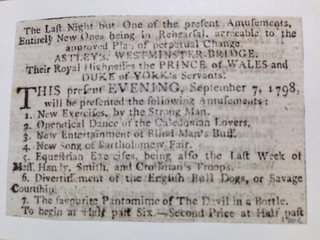 The Last Night but One of the present Amusements,
Entirely New Ones being in Rehearsal, agreeable to the
approved Plan of perpetual Change.
ASTLEY's, WESTMINSTER-BRIDGE.
Their Royal Highnesses the PRINCE of WALES and
DUKE of YORK's Servants.
THIS present EVENING, September 7, 1798,
will be presented the following Amusements:
1. New Exercises, by the Strong Man.
2. Operatical Dance of the Caledonian Lovers,
3. New Entertainment of Blind Man's Buff.
4. New Song of Bartholomew Fair.
5. Equestrian Exercises, being also the Last Week of
Mess. Handy, Smith, and Crossman's Troops.
6. Divertisement of the English Bull Dogs, or Savage
Courtship.
7. The favourite Pantomime of The Devil in a Bottle.
To begin at Half past Six.—Second Price at Half past